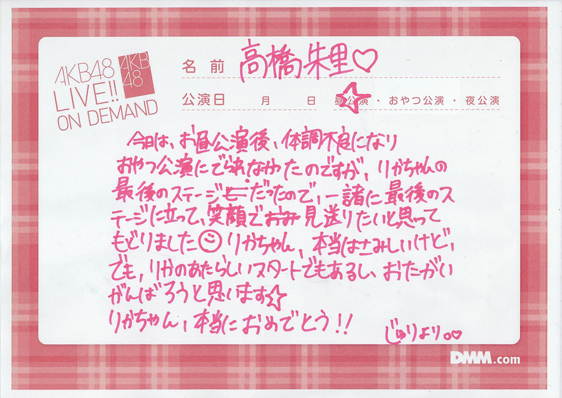 AKB48
LIVE!!
ON DEMAND
AKB
48
名前 高橋朱里♡
公演日 月 日 昼公演・おやつ公演・夜公演
今日は、お昼公演後、体調不良になり
おやつ公演にでられなかったのですが、りかちゃんの
最後のステージだったので、一諸に最後のス
テージに立って、笑顔で見送りたいと思って
もどりました☺りかちゃん、本当はさみしいけど、
でも、りかのあたらしいスタートでもあるし、おたがい
がんばろうと思います☆
りかちゃん、本当におめでとう!!
じゅりより
DMM.com